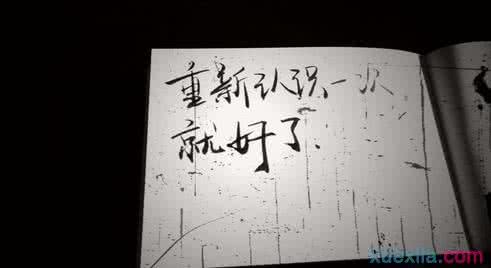 重新认识一次
就好了.
xuexila.com